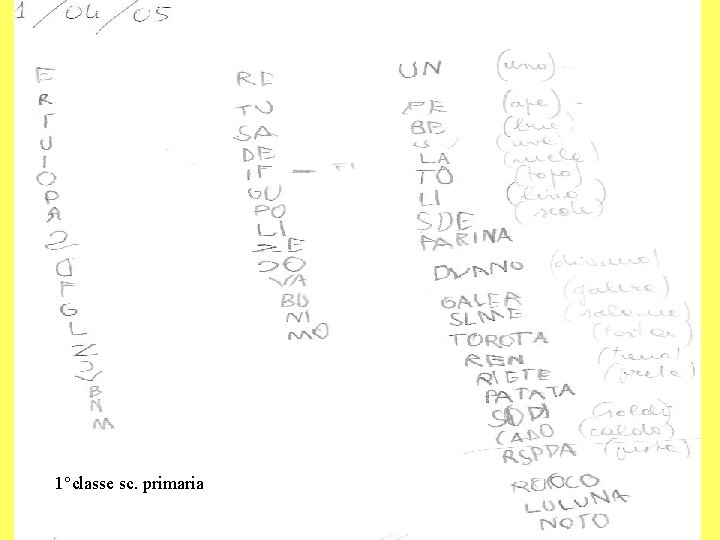 1/04/05
E
R
T
U
I
O
P
A
S
D
F
G
L
Z
V
B
N
M
RE
TU
SA
DE
IF –
GU
PO
LI
ZE
DO
VA
BU
NI
MO
UN (uno) –
PE (ape) –
BE (bue)
(uva)
LA (mela)
TO (topo)
LI (lino)
SDE (scole)
FARINA
DVANO (divano)
GALER (galera)
SLME (salame)
TOROTA (torta)
REN (treno)
RIETE (prete)
PATATA
SODI (soldi)
CADO (caldo)
RSPDA
LULUNA
NOTO
1°classe sc. primaria